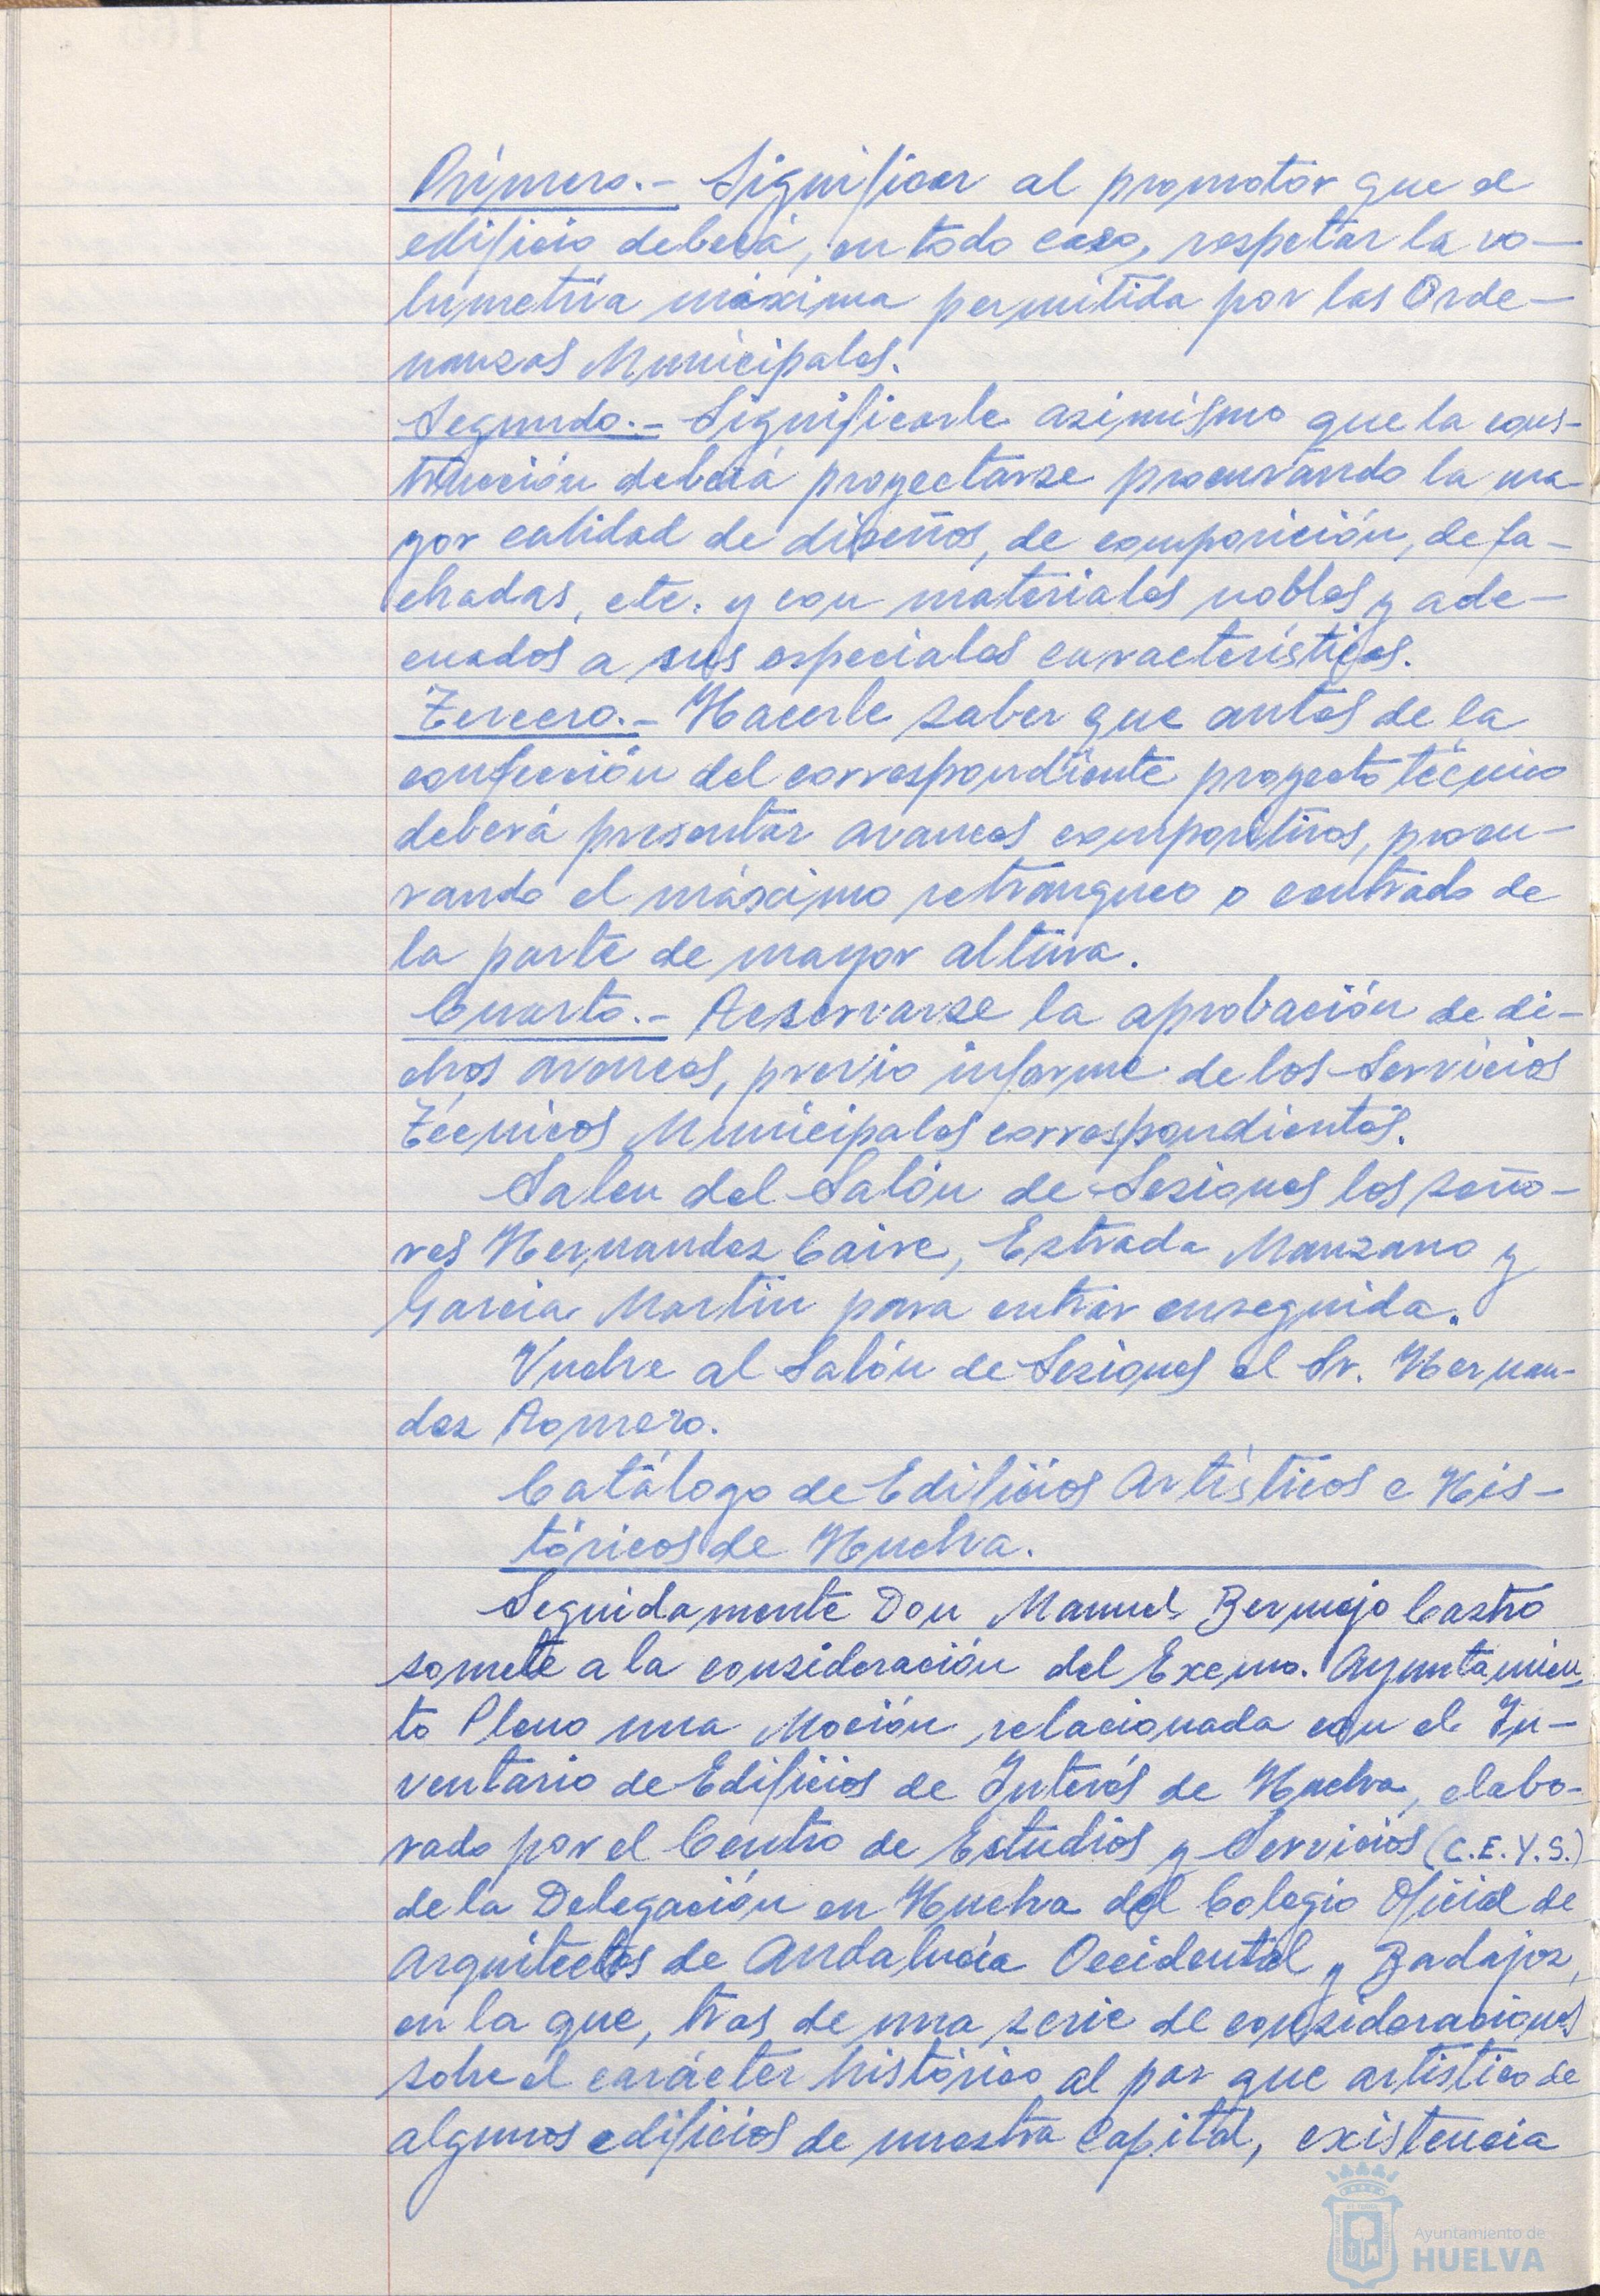 Primero.- Significar al promotor que el
edificio deberá, en todo caso, respetar la vo-
lumetria máxima permitida por las Orde-
nanzas Municipales.
Segundo.- Significarle asimismo que la cons-
trucción deberá proyectarse procurando la ma-
yor calidad de diseños, de composición, de fa-
chadas, etc. y con materiales nobles y ade-
cuados a sus especiales características.
Tercero.- Hacerle saber que antes de la
confección del correspondiente proyecto técnico
deberá presentar avances compositivos, procu-
rando el máximo retranqueo o centrado de
la parte de mayor altura.
Cuarto.- Reservarse la aprobación de di-
chos avances, previo informe de los Servicios
Técnicos Municipales correspondientes.
Salen del Salón de Sesiones los seño-
res Hernandez Caire, Estrada Manzano y
Garcia Martin para entrar enseguida.
Vuelve al Salón de Sesiones el Sr. Hernan-
dez Romero.
Catálogo de Edificios Artísticos e His-
tóricos de Huelva.
Seguidamente Don Manuel Bermejo Castro
somete a la consideración del Excmo. Ayuntamien-
to Pleno una Moción relacionada con el In-
ventario de Edificios de Interés de Huelva, elabo-
rado por el Centro de Estudios y Servicios (C.E.Y.S.)
de la Delegación en Huelva del Colegio Oficial de
Arquitectos de Andalucía Occidental y Badajoz,
en la que, tras de una serie de consideraciones
sobre el carácter histórico al par que artístico de
algunos edificios de nuestra Capital, existencia
Ayuntamiento de
HUELVA